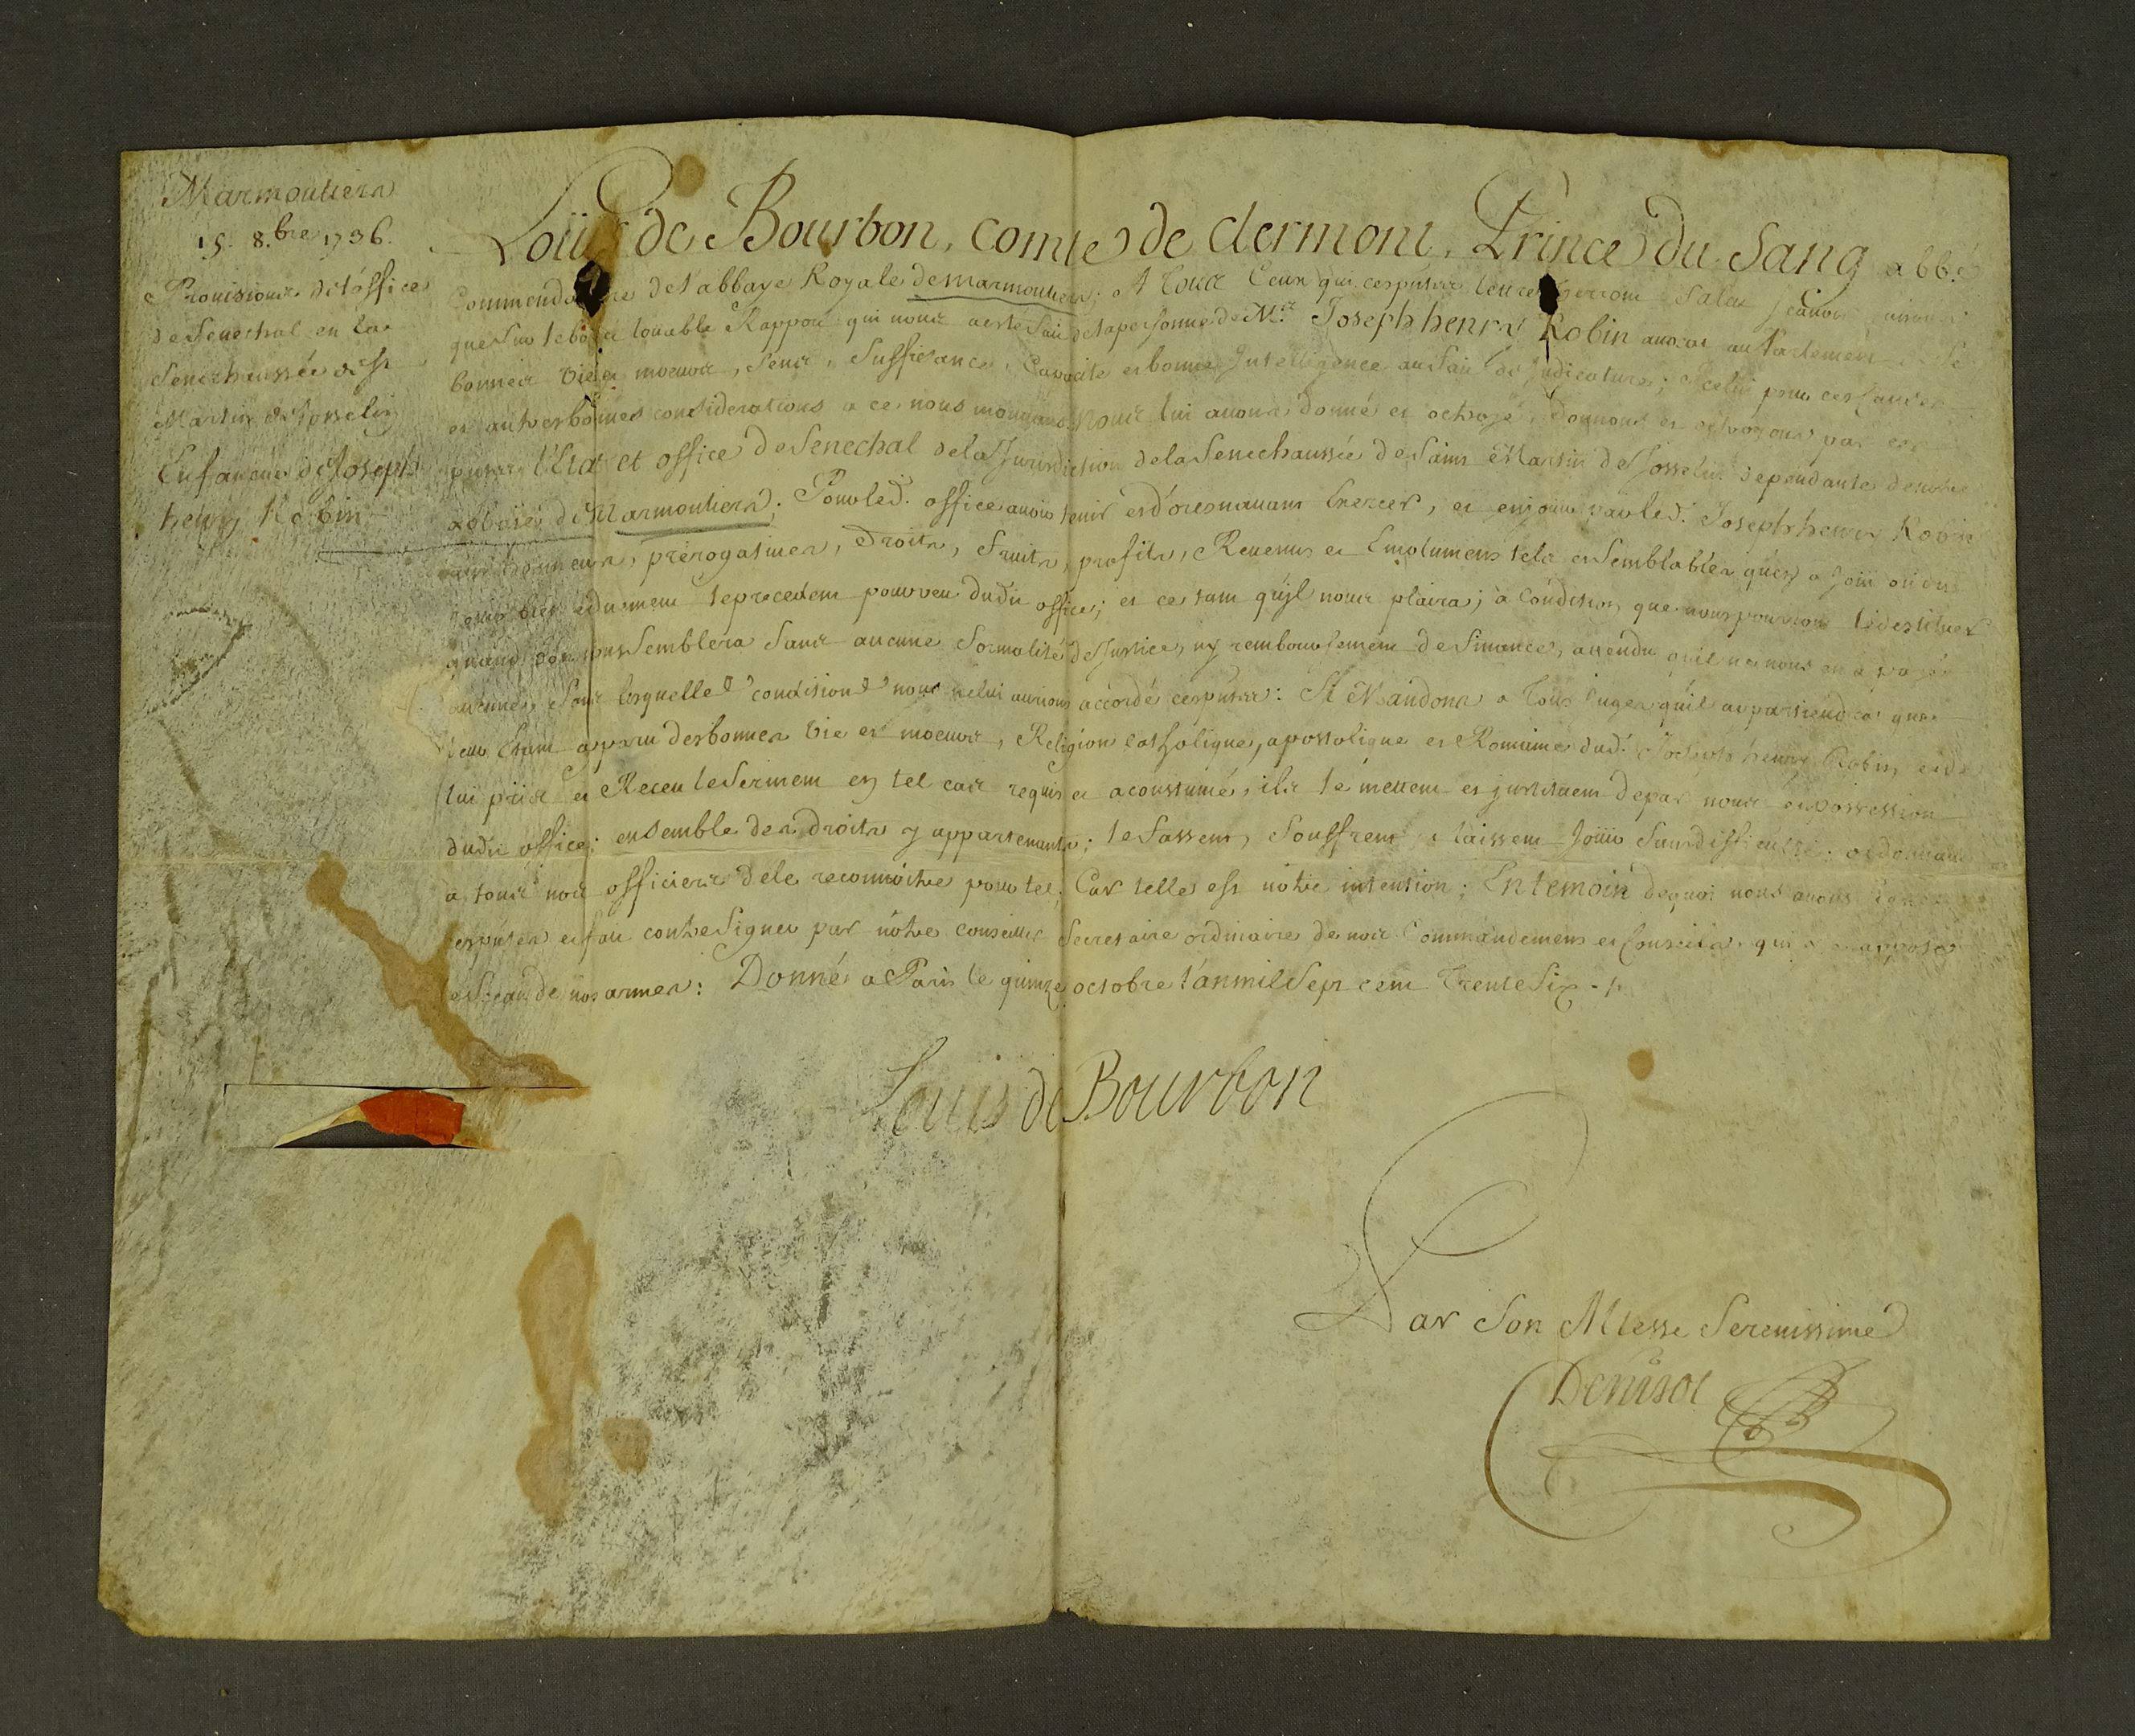 Marmoutiers
15. 8.bre 1736.
Provisions de l'office
de Senechal en la
Senechaussée de St
Martin de Josselin
En faveur de Joseph
henry Robin
Loüis de Bourbon, comte de Clermont, Prince du Sang abbé
Commendataire de l'abbaye Royale de marmoutiers; A tous Ceux qui ces pntes lettres verront Salut Sçavoir faisons
que Sur le bon et louable Rapport qui nous a esté fait de la personne de Mr. Joseph henry Robin avocat au Parlement de
bonnes vie et moeurs, Sens, Suffisance, Capacité et bonne Intelligence au fait de Judicature; Icelui pour ces causes
et autres bonnes considerations a ce nous mouvans Nous lui avons donné et octroyé, donnons et octroyons par ces
pntes l'Etat et office de Senechal de la Jurisdiction de la Senechaussée de Saint Martin de Josselin dependante de notre
abbaie de Marmoutiers; Pour led. office avoir tenir et d'oresnavant Exercer, et en jouir par led. Joseph henry Robin
aux honneurs, prérogatives, Droits, fruits, profits, Revenus et Emolumens tels et Semblables qu'en a joüi ou dû
jouir bien et duement le precedent pourveu dudit office; et ce tant qu'jl nous plaira; à Condition que nous pourrons le destituer
quand bon nous Semblera Sans aucune formalité de Justice, ny remboursement de finance, attendu qu'il ne nous en a payé
aucune, Sans lesquelles conditions nous ne lui aurions accordé ces pntes: Si Mandons a Tous Juges qu'il appartiendra que
leur Etant apparu des bonnes Vie et moeurs, Religion Catholique, apostolique et Romaine dud. Joseph henry Robin, et de
lui pris et Receu le Serment en tel cas requis et acoustumé, ils le mettent et jnstituent de par nous en possession
dudit office; ensemble des droits y appartenants; le fassent, Souffrent et laissent Joüir Sans difficulté; ordonnant
a tous nos officiers de le reconnoitre pour tel; Car telle est notre intention; En temoin de quoi nous avons signé
ces pntes et fait contresigner par nôtre conseiller Secretaire ordinaire de nos Commandemens et Conseils, qui y a apposé
le Sceau de nos armes: Donné a Paris le quinze octobre l'an mil Sept cent Trente Six
Louis de Bourbon
Par Son Altesse Serenissime
Denisot